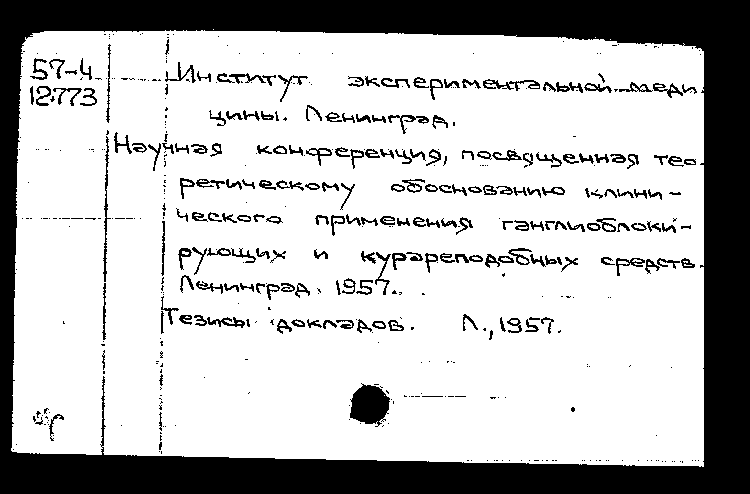 57-4
12773
Институт экспериментальной меди-
цины. Ленинград.
Научная конференция, посвященная тео-
ретическому обоснованию клини-
ческого применения ганглиоблоки-
рующих и курареподобных средств.
Ленинград. 1957.
Тезисы докладов. Л., 1957.